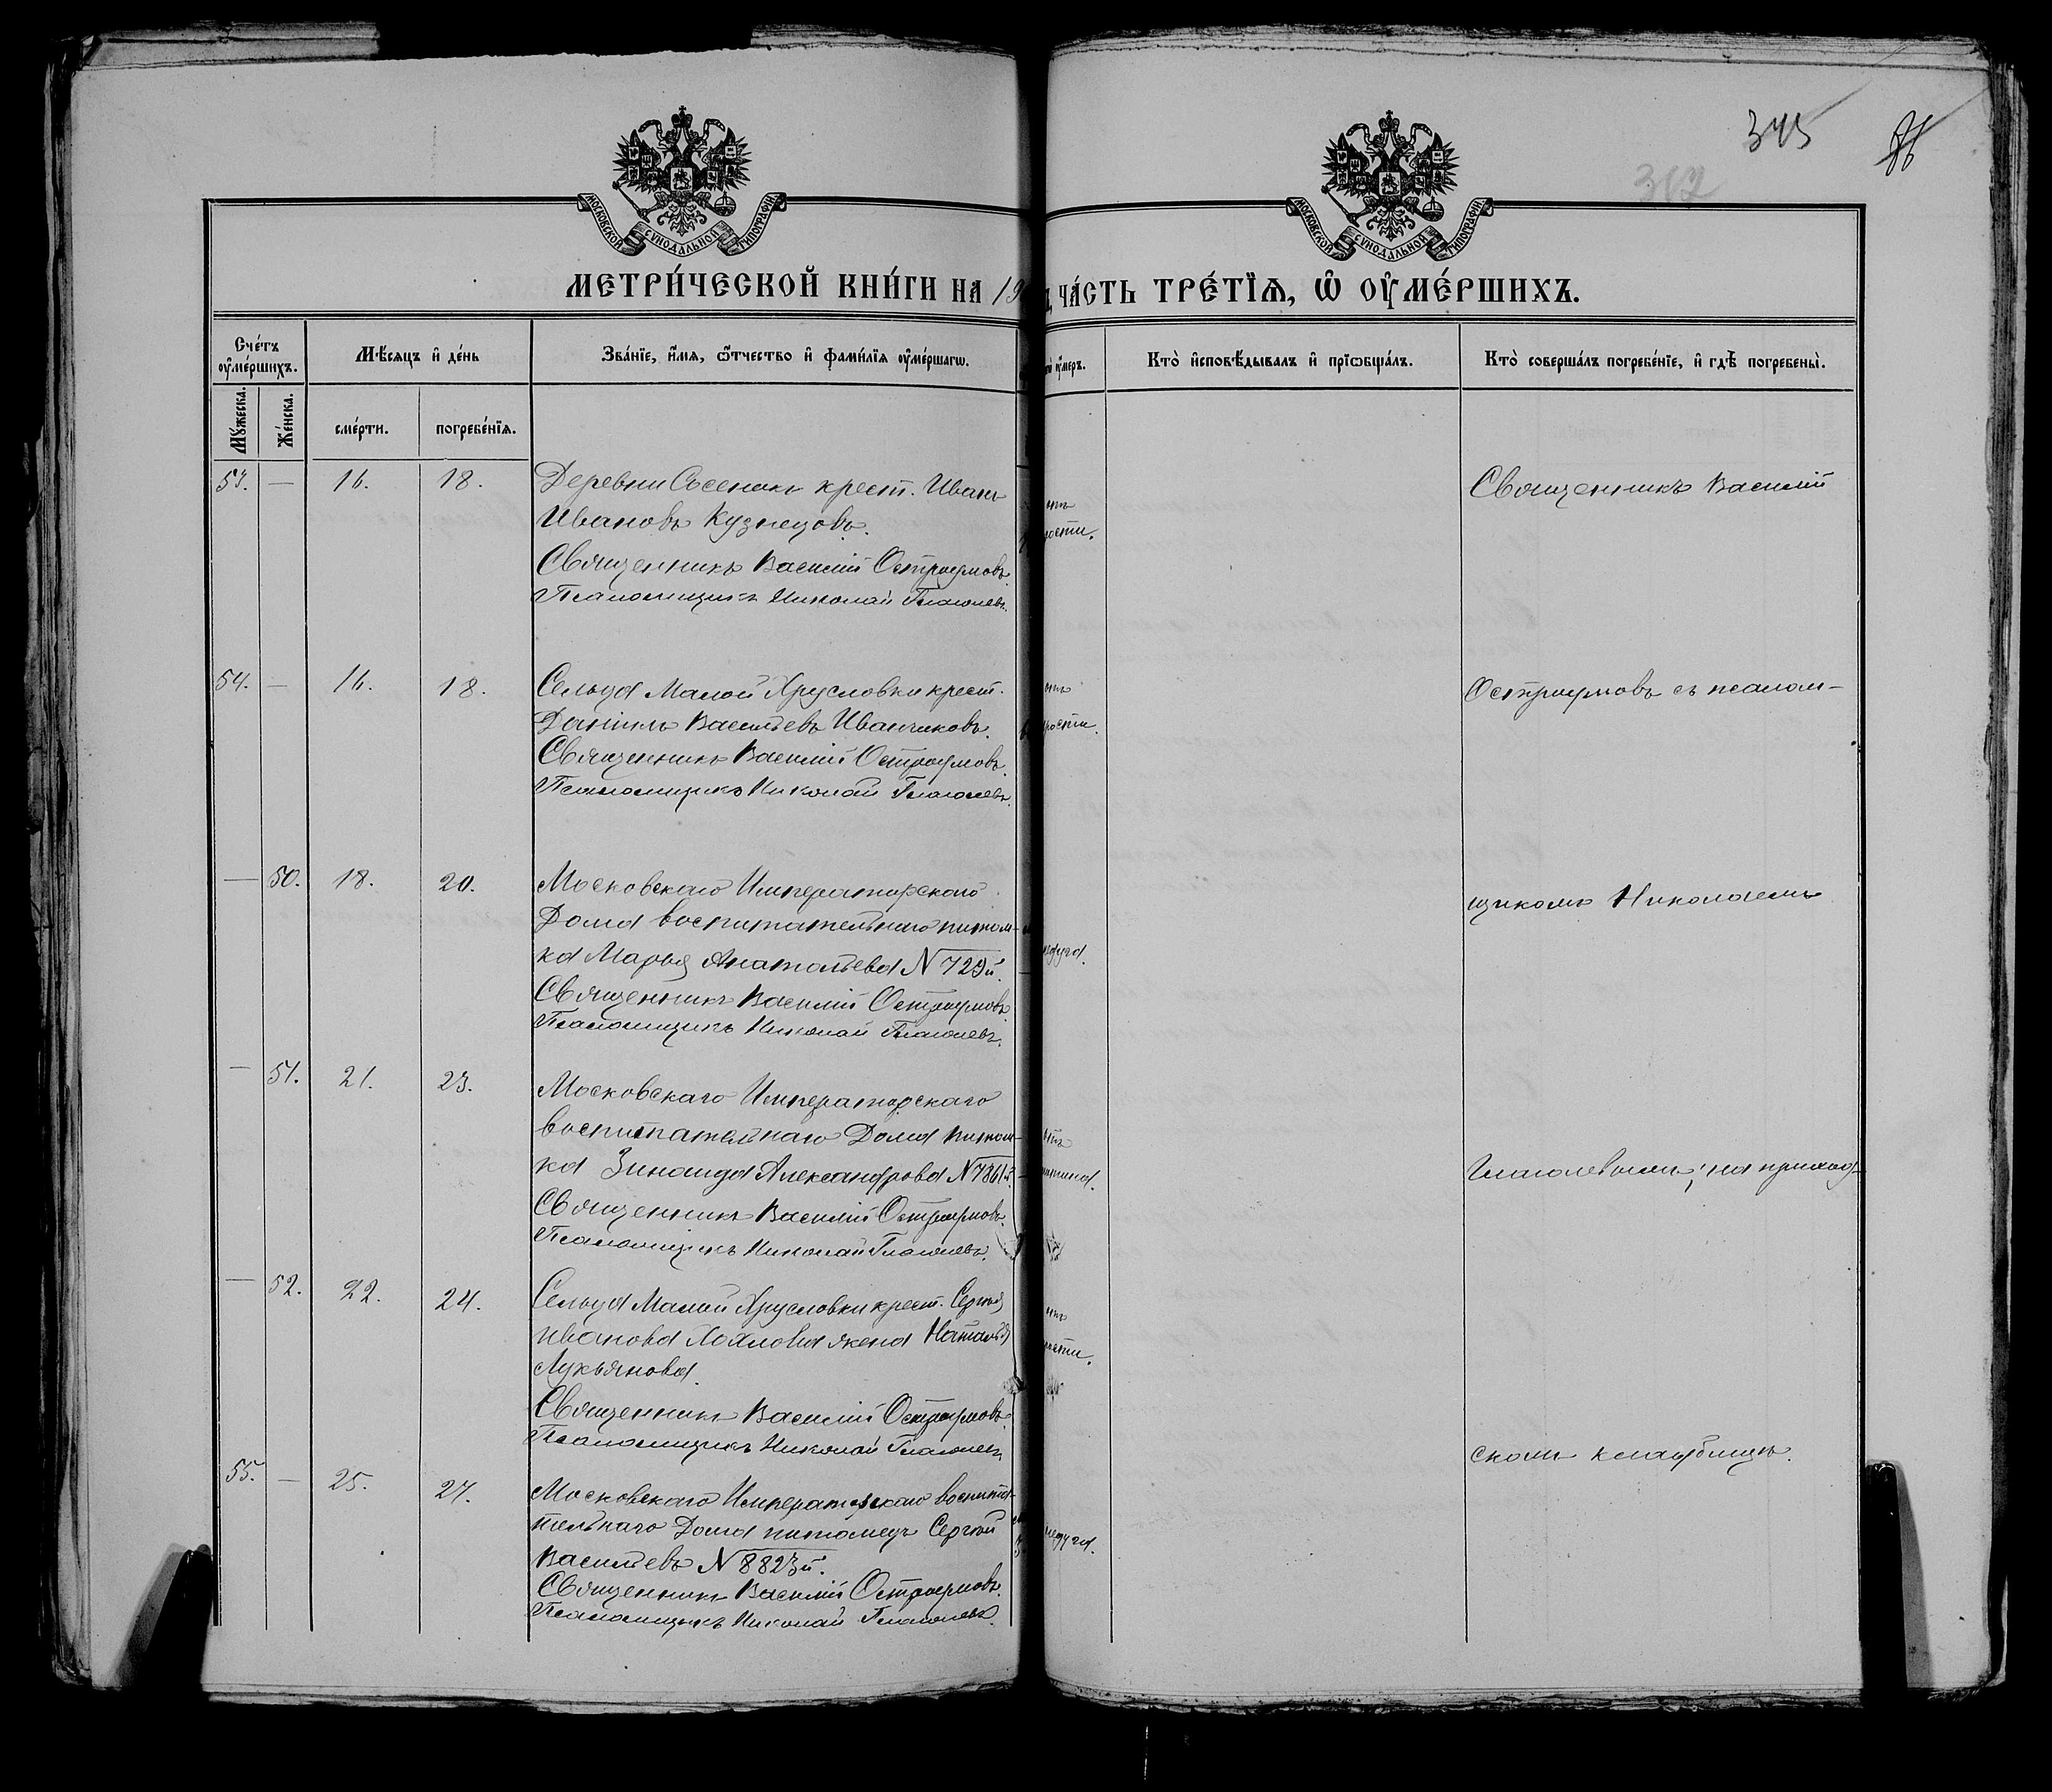 345
362
МОСКОВСКОЙ СѴНОДАЛЬНОЙ ТИПОГРАФІИ
МОСКОВСКОЙ СѴНОДАЛЬНОЙ ТИПОГРАФІИ
МЕТРИ́ЧЕСКОЙ КНИ́ГИ НА 19 ЧА́СТЬ ТРЕ́ТЇѦ, Ѿ ОУ҆МЕ́РШИХЪ.
Сче́тъ оу҆ме́ршихъ.
Мѣ́сяцъ и҆ де́нь
Зва́нїе, и҆́мѧ, ѻ҆́тчество и҆ фами́лїѧ оу҆ме́ршагѡ.
оу҆́меръ.
Кто̀ и҆сповѣ́дывалъ и҆ прїѡбща́лъ.
Кто̀ соверша́лъ погребе́нїе, и҆ гдѣ̀ погребены̀.
Мꙋ́жеска.
Же́нска.
сме́рти.
погребе́нїѧ.
53. — 16. 18. Деревни Сосенокъ крест. Иванъ
Ивановъ Кузнецовъ.
Священникъ Василій Остроумовъ.
Псаломщикъ Николай Глаголевъ.
Священникъ Василій
54. — 16. 18. Сельца Малой Хрусловки крест.
Даніилъ Васильевъ Иванчиковъ.
Священникъ Василій Остроумовъ.
Псаломщикъ Николай Глаголевъ.
Остроумовъ съ псалом-
— 50. 18. 20. Московскаго Императорскаго
Дома воспитательнаго питом-
ка Марья Анатольева N 729й.
Священникъ Василій Остроумовъ.
Псаломщикъ Николай Глаголевъ.
недуга.
щикомъ Николаемъ
— 51. 21. 23. Московскаго Императорскаго
воспитательнаго Дома питом-
ка Зинаида Александрова N 7861й.
Священникъ Василій Остроумовъ.
Псаломщикъ Николай Глаголевъ.
Глаголевымъ; на приход-
— 52. 22. 24. Сельца Малой Хрусловки крест. Сергѣя
Иванова Хохлова жена Наталья
Лукьянова.
Священникъ Василій Остроумовъ.
Псаломщикъ Николай Глаголевъ.
скомъ кладбищѣ.
55. — 25. 27. Московскаго Императорскаго воспита-
тельнаго Дома питомецъ Сергѣй
Васильевъ N 8823й.
Священникъ Василій Остроумовъ.
Псаломщикъ Николай Глаголевъ.
недуга.